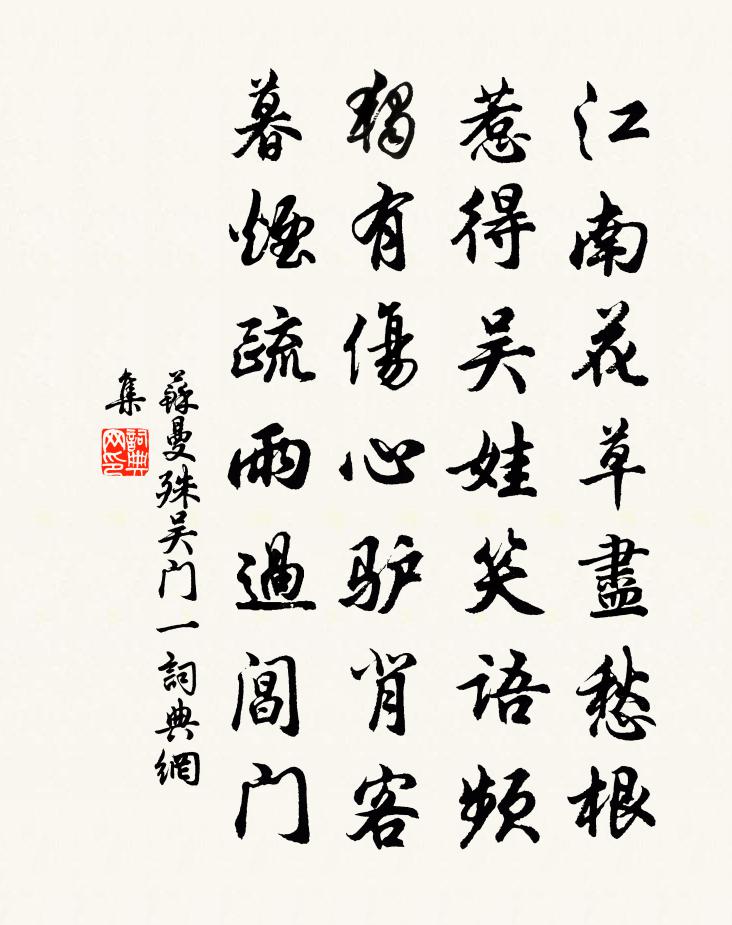 江南花草盡愁根
惹得吴娃笑语頻
獨有傷心驴背客
暮煙疏雨過閶门
蘇曼殊吴门一詞典網
集
詞典
网印